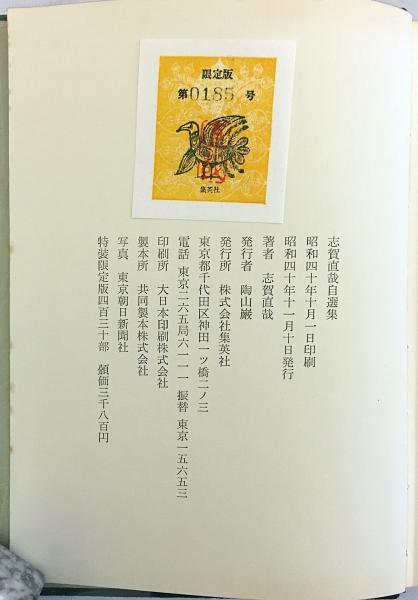 限定版
第0185号
集英社
志賀直哉自選集
昭和四十年十月一日印刷
昭和四十年十一月十日発行
著者 志賀直哉
発行者 陶山巌
発行所 株式会社集英社
東京都千代田区神田一ツ橋二ノ三
電話 東京二六五局六一一一 振替 東京一五六五三
印刷所 大日本印刷株式会社
製本所 共同製本株式会社
写真 東京朝日新聞社
特装限定版四百三十部 頒価三千八百円